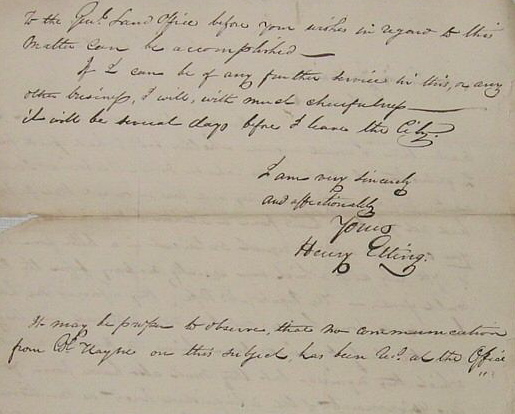 To the Genl. Land Office before your wishes in regard to this
Matter Can be accomplished —
If I can be of any further service in this, or any
other business, I will, with much cheerfulness —
it will be several days before I leave the City.
I am very sincerely
and affectionately
Yours
Henry Elling.
It may be proper to observe, that no communication
from Col. Hayne on this subject, has been Recd. at the Office